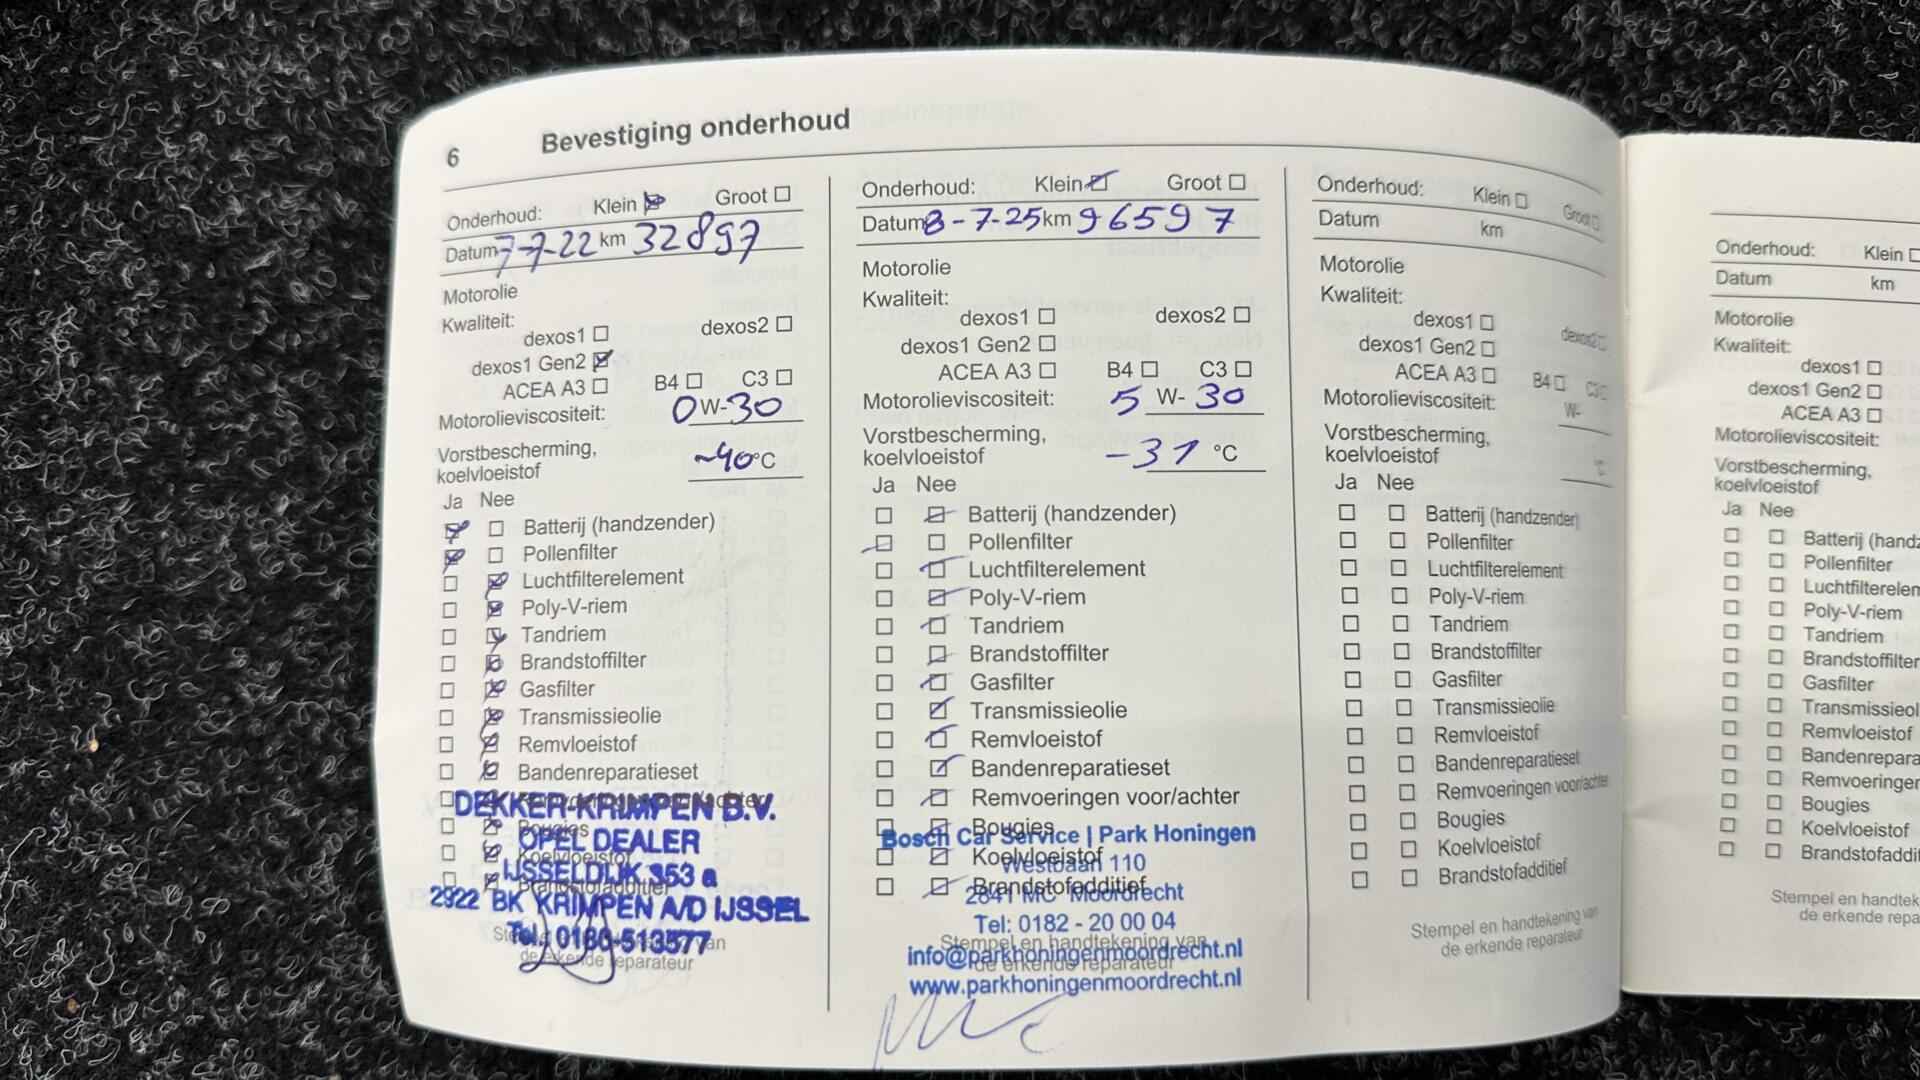 6 Bevestiging onderhoud
Onderhoud: Klein Groot
Datum 7-7-22 km 32897
Motorolie
Kwaliteit:
dexos1 dexos2
dexos1 Gen2
ACEA A3 B4 C3
Motorolieviscositeit: 0 W-30
Vorstbescherming,
koelvloeistof ~40°C
Ja Nee
Batterij (handzender)
Pollenfilter
Luchtfilterelement
Poly-V-riem
Tandriem
Brandstoffilter
Gasfilter
Transmissieolie
Remvloeistof
Bandenreparatieset
DEKKER-KRIMPEN B.V.
Bougies
OPEL DEALER
Koelvloeistof
IJSSELDIJK 353 a
Brandstofadditief
2922 BK KRIMPEN A/D IJSSEL
Tel. 0180-513577
de erkende reparateur
Onderhoud: Klein Groot
Datum 8-7-25 km 96597
Motorolie
Kwaliteit:
dexos1 dexos2
dexos1 Gen2
ACEA A3 B4 C3
Motorolieviscositeit: 5 W- 30
Vorstbescherming,
koelvloeistof -31 °C
Ja Nee
Batterij (handzender)
Pollenfilter
Luchtfilterelement
Poly-V-riem
Tandriem
Brandstoffilter
Gasfilter
Transmissieolie
Remvloeistof
Bandenreparatieset
Remvoeringen voor/achter
Bougies
Bosch Car Service | Park Honingen
Koelvloeistof
Westbaan 110
Brandstofadditief
2841 MC Moordrecht
Tel: 0182 - 20 00 04
Stempel en handtekening van
info@parkhoningenmoordrecht.nl
de erkende reparateur
www.parkhoningenmoordrecht.nl
Onderhoud: Klein Groot
Datum km
Motorolie
Kwaliteit:
dexos1 dexos2
dexos1 Gen2
ACEA A3 B4 C3
Motorolieviscositeit: W-
Vorstbescherming,
koelvloeistof °C
Ja Nee
Batterij (handzender)
Pollenfilter
Luchtfilterelement
Poly-V-riem
Tandriem
Brandstoffilter
Gasfilter
Transmissieolie
Remvloeistof
Bandenreparatieset
Remvoeringen voor/achter
Bougies
Koelvloeistof
Brandstofadditief
Stempel en handtekening van
de erkende reparateur
Onderhoud: Klein
Datum km
Motorolie
Kwaliteit:
dexos1
dexos1 Gen2
ACEA A3
Motorolieviscositeit:
Vorstbescherming,
koelvloeistof
Ja Nee
Batterij (handz
Pollenfilter
Luchtfilterelem
Poly-V-riem
Tandriem
Brandstoffilter
Gasfilter
Transmissieol
Remvloeistof
Bandenrepara
Remvoeringer
Bougies
Koelvloeistof
Brandstofaddit
Stempel en handtek
de erkende repa